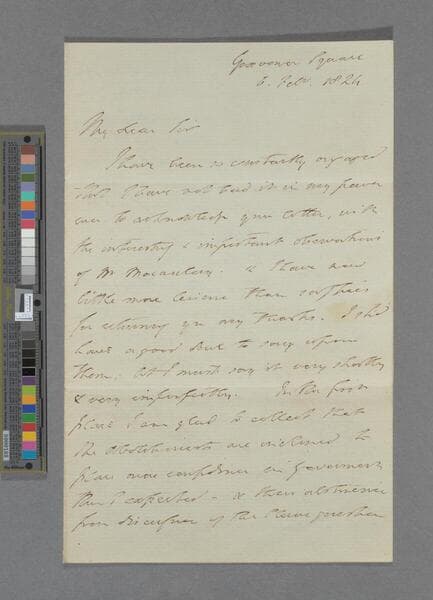 Grosvenor Square
6. Feb. 1824
My dear Sir
I have been so constantly engaged
that I have not had it in my power
ever to acknowledge your letter, with
the interesting & important observations
of Mr Macaulay. & I have now
little more leisure than suffices
for returning you my thanks. I shd
have a good deal to say upon
them, but I must say it very shortly
& very imperfectly. In the first
place I am glad to collect that
the abolitionists are inclined to
place more confidence in Government
than I expected - & their abstinence
from discussion of the Slave question